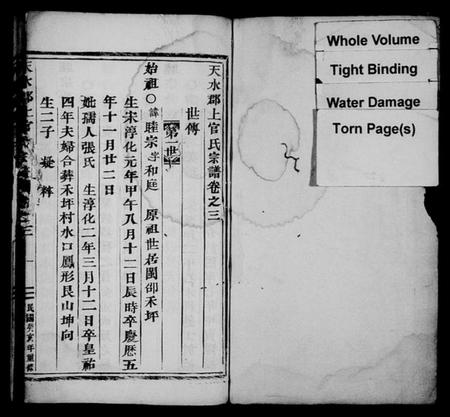 天水郡上官氏宗譜卷之三
世傳
第一世
始祖〇諱睦宗字和庭 原祖世居閩邵禾坪
生宋淳化元年甲午八月十二日辰時卒慶厯五
年十一月廿二日
妣孺人張氏 生淳化二年三月十二日卒皇祐
四年夫婦合葬禾坪村水口鳳形艮山坤向
生二子 疑 料
天水郡上官氏宗譜卷之三
一
民國癸亥年重修
Whole Volume
Tight Binding
Water Damage
Torn Page(s)